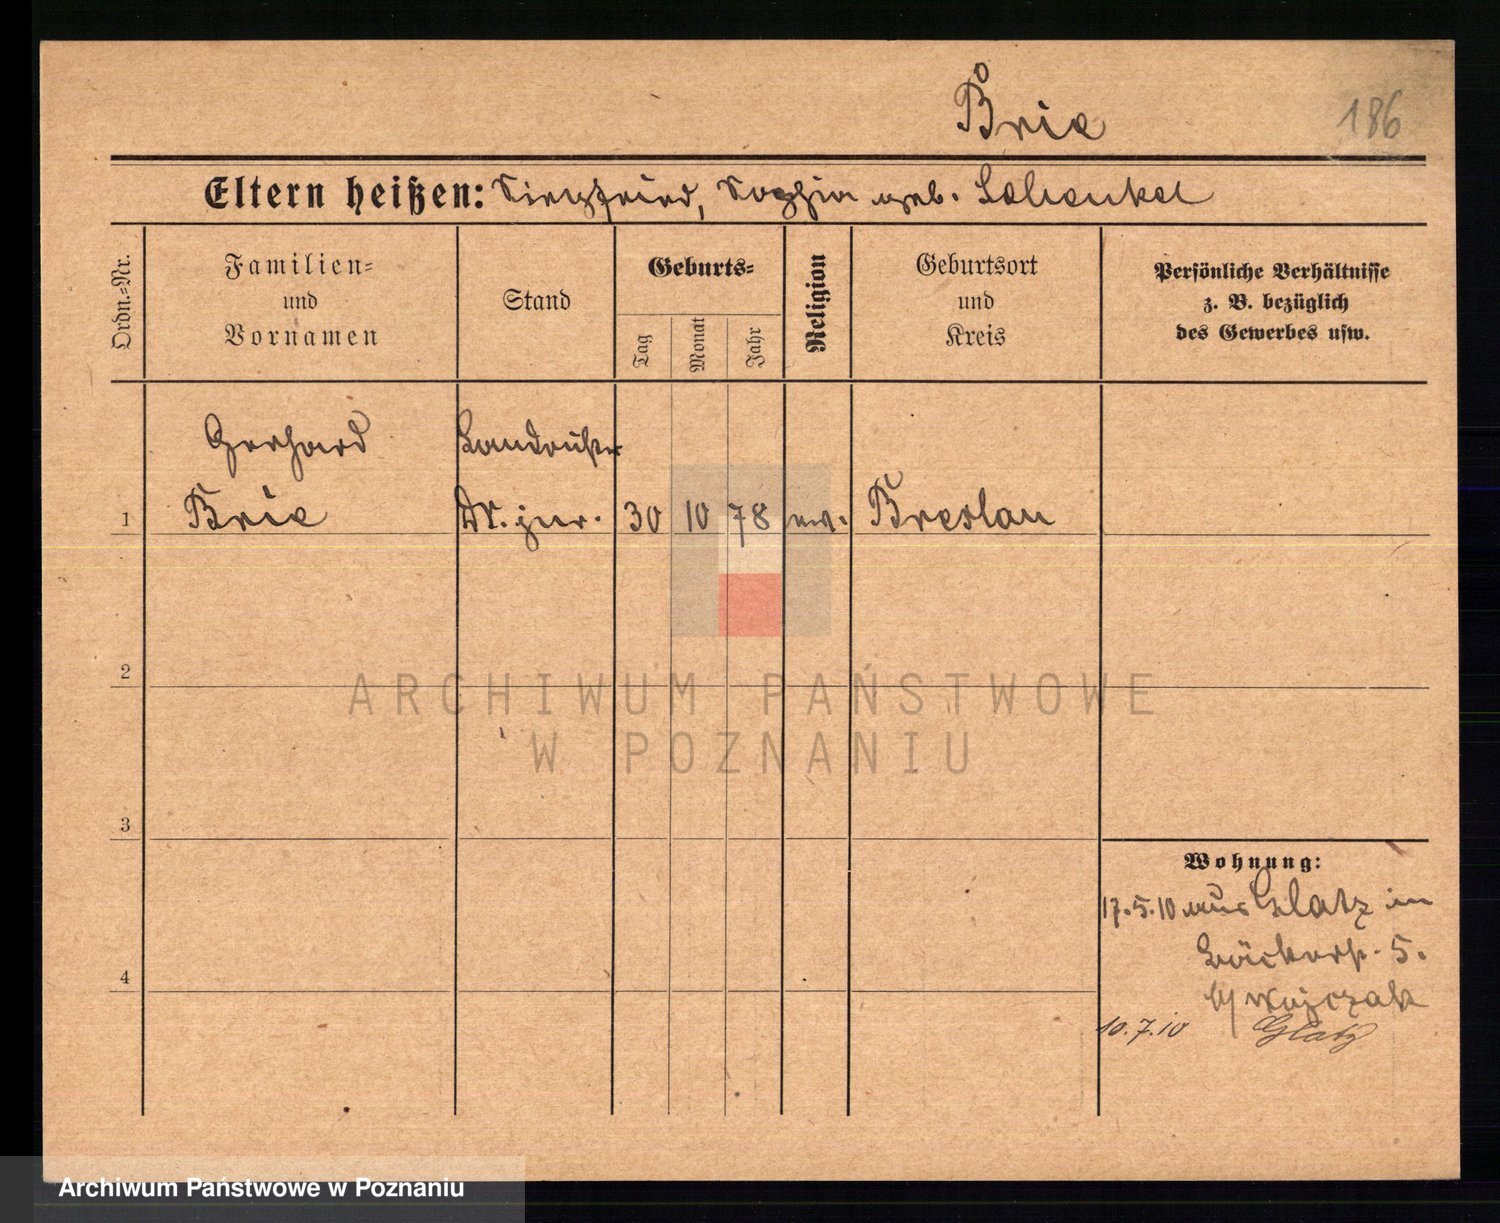 Brie
186
Eltern heißen: Siegfried, Sophie geb. Schenkel
Ordn.-Nr.
Familien-
und
Vornamen
Stand
Geburts-
Tag
Monat
Jahr
Religion
Geburtsort
und
Kreis
Persönliche Verhältnisse
z. B. bezüglich
des Gewerbes usw.
Gerhard
Landricht
1 Brie Dr. jur. 30 10 78 ev. Breslau
2
ARCHIWUM PAŃSTWOWE
W POZNANIU
3
Wohnung:
17.5.10 aus Glatz in
Bäckerst. 5.
4
b/ Wojczak
10.7.10 Glatz
Archiwum Państwowe w Poznaniu